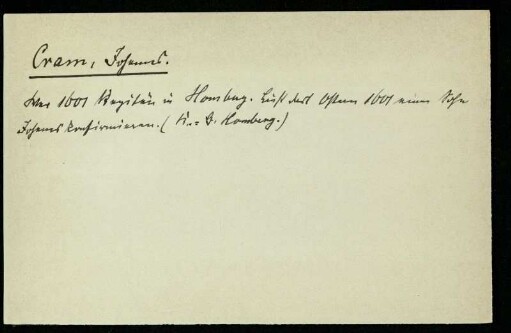 Cram, Johannes.
War 1601 Kapitän in Homberg. Läßt das. Ostern 1601 einen Sohn
Johannes konfirmieren. (K.-B. Homberg.)